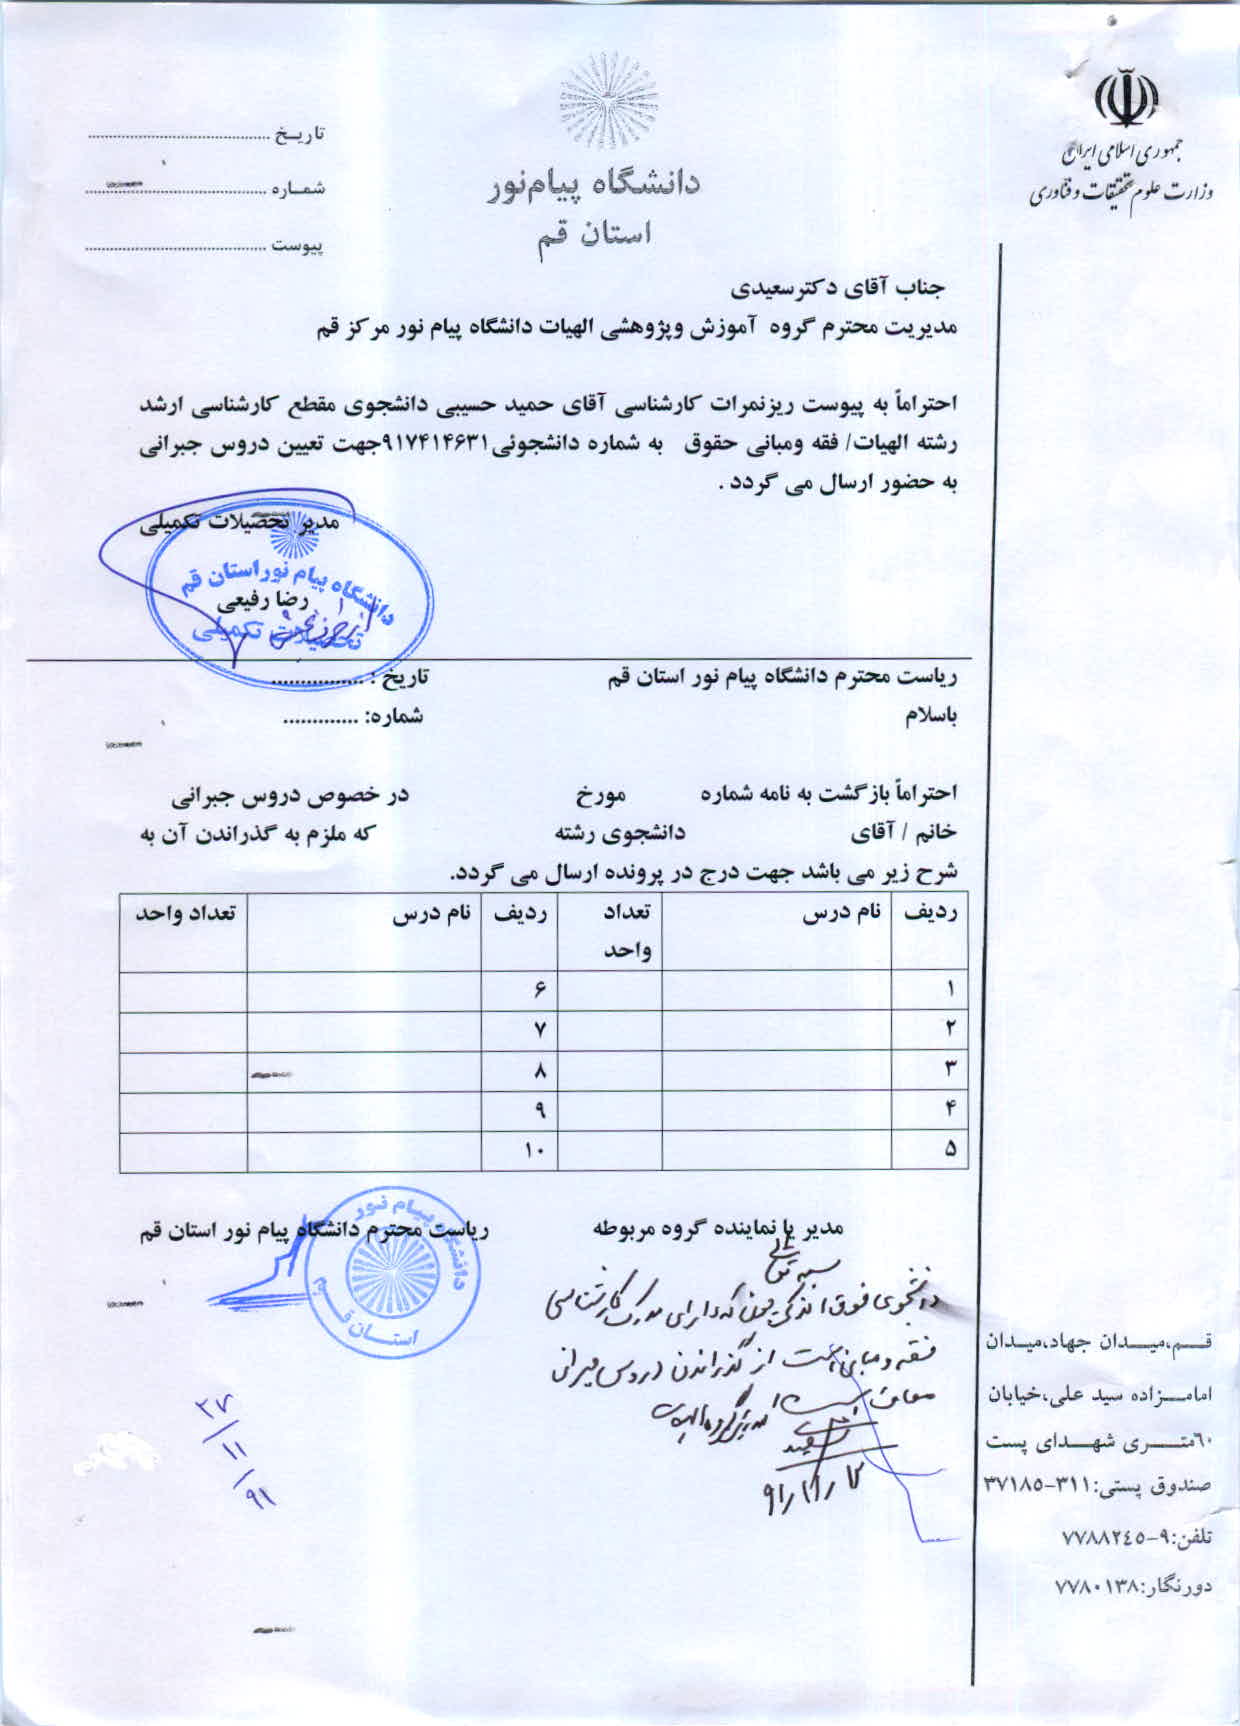 جمهوری اسلامی ایران
وزارت علوم تحقیقات و فناوری
دانشگاه پیام‌نور
استان قم
تاریـخ ......................................
شمـاره ......................................
پیوست ......................................
جناب آقای دکترسعیدی
مدیریت محترم گروه آموزش وپژوهشی الهیات دانشگاه پیام نور مرکز قم
احتراماً به پیوست ریزنمرات کارشناسی آقای حمید حسیبی دانشجوی مقطع کارشناسی ارشد
رشته الهیات/ فقه ومبانی حقوق به شماره دانشجوئی۹۱۷۴۱۴۶۳۱جهت تعیین دروس جبرانی
به حضور ارسال می گردد .
مدیر تحصیلات تکمیلی
دانشگاه پیام نور استان قم
رضا رفیعی
تحصیلات تکمیلی
ریاست محترم دانشگاه پیام نور استان قم تاریخ : ................
باسلام شماره: .............
احتراماً بازگشت به نامه شماره مورخ در خصوص دروس جبرانی
خانم / آقای دانشجوی رشته که ملزم به گذراندن آن به
شرح زیر می باشد جهت درج در پرونده ارسال می گردد.
ردیف نام درس تعداد واحد ردیف نام درس تعداد واحد
۱ ۶
۲ ۷
۳ ۸
۴ ۹
۵ ۱۰
مدیر یا نماینده گروه مربوطه ریاست محترم دانشگاه پیام نور استان قم
دانشگاه پیام نور
استـان قـم
بسمه تعالی
دانشجوی فوق الذکر چون که دارای مدرک کارشناسی
فقه و مبانی است از گذراندن دروس جبرانی
معاف است مدیر گروه الهیات
سعیدی
۲۷/۱۱/۹۱
قـــم،میـــدان جهاد،میـدان
امامـــزاده سید علی،خیابان
٦٠متـــری شهـــدای پست
صندوق پستی:۳۱۱-۳۷۱۸۵
تلفن:۹-۷۷۸۸۲٤٥
دورنگار:۷۷۸۰۱۳۸